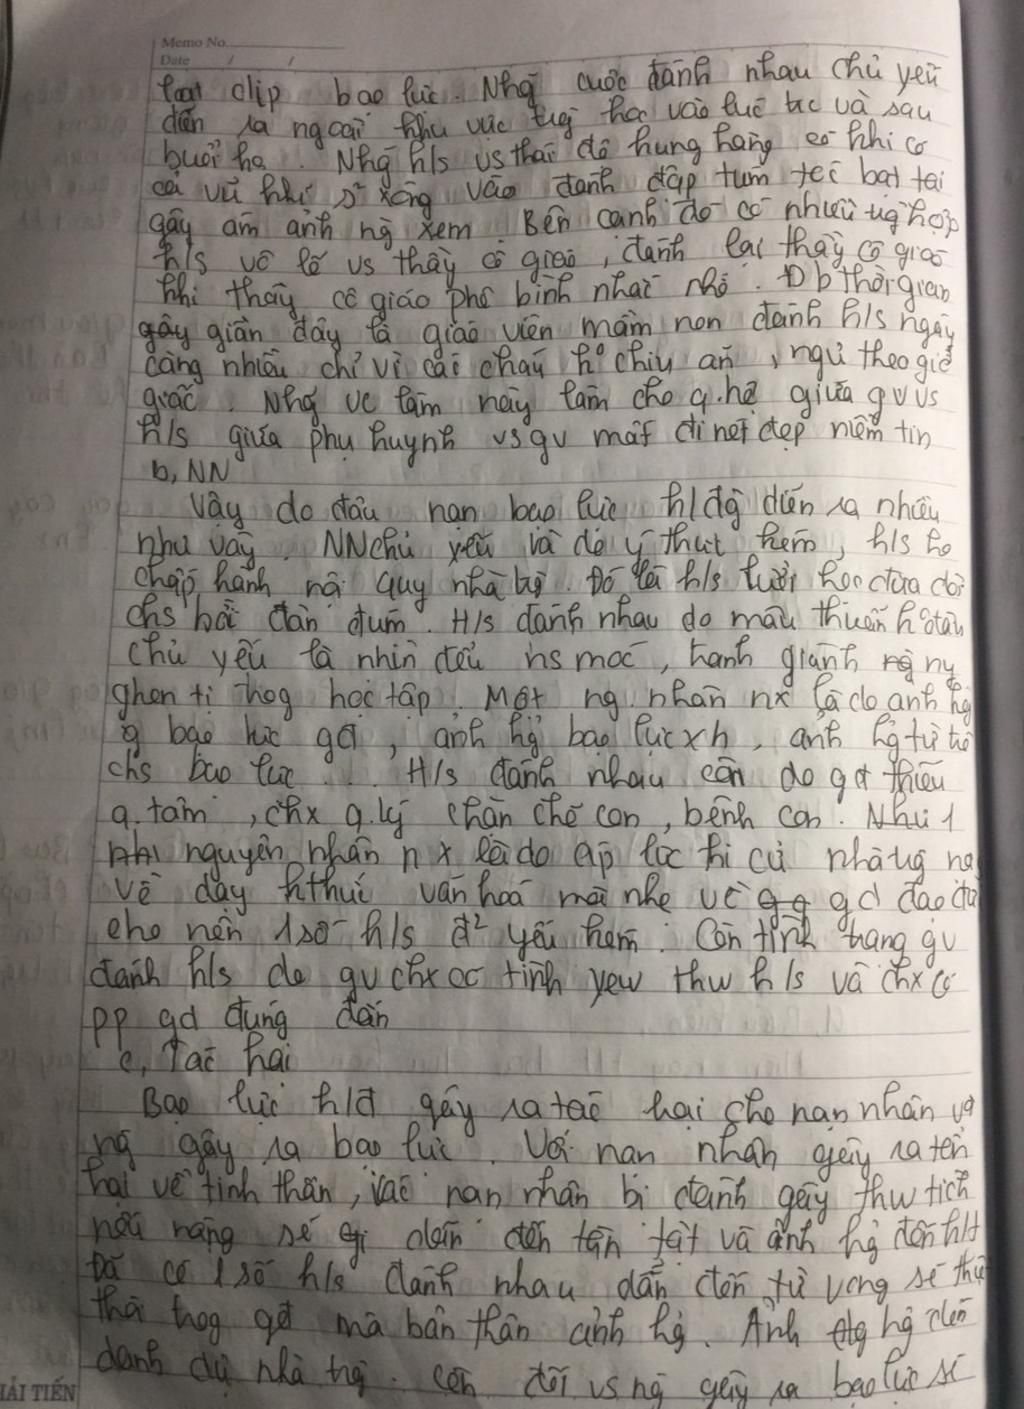 Memo No.
Date / /
loạt clip bạo lực. Nhg cuộc đánh nhau chủ yếu
diễn ra ngoài khu vực trg học vào lúc trc và sau
buổi họ. Nhg h/s vs thái độ hung hăng có khi có
cả vũ khí xông vào đánh đập túm tóc bạt tai
gây ám ảnh ng xem. Bên cạnh đó có nhiều trg hợp
h/s vô lễ vs thầy cô giáo, đánh lại thầy cô giáo
khi thầy cô giáo phê bình nhắc nhở. Đ b thời gian
gây gần đây là giáo viên mầm non đánh h/s ngày
càng nhiều chỉ vì các cháu k chịu ăn, ngủ theo giờ
giấc. Nhg vc làm này làm cho q.hệ giữa gv vs
h/s giữa phụ huynh vs gv mất đi nét đẹp niềm tin
b, NN
Vậy do đâu nạn bạo lực h/đg diễn ra nhiều
như vậy. NN chủ yếu là do ý thức kém, h/s ko
chấp hành nội quy nhà trg. Đó là h/s lười học đua đòi
chs bời đàn đúm. H/s đánh nhau do mâu thuẫn k đâu
chủ yếu là nhìn đểu ns móc, tranh giành ng ny
ghen tị trog học tập. Một ng. nhân nx là do ảnh hg
g bạo lực gđ, ảnh hg bạo lực xh, ảnh hg từ trò
chs bạo lực ... H/s đánh nhau còn do gđ thiếu
q.tâm, chx q.lý chăn chế con, bênh con. Như 1
nguyên nhân nx là do áp lực thi cử nhà trg
về dạy kthức văn hoá mà nhẹ về gd đạo đức
cho nên 1 số h/s đ² yếu kém. Còn tình trạng gv
đánh h/s do gv chx có tình yew thw h/s và chx có
pp gd đúng đắn
c, Tác hại
Bạo lực h/đ gây ra tác hại cho nạn nhân và
ng gây ra bạo lực. Với nạn nhân gây ra tổn
hại về tinh thần, các nạn nhân bị đánh gây thw tích
nếu nặng sẽ dẫn đến tàn tật và ảnh hg đến h/t
Đã có 1 số h/s đánh nhau dẫn đến tử vong sẽ
trog gđ mà bản thân ảnh hg. Ảnh hg đến
danh dự nhà trg. Còn đối vs ng gây ra bạo lực sẽ
HẢI TIẾN